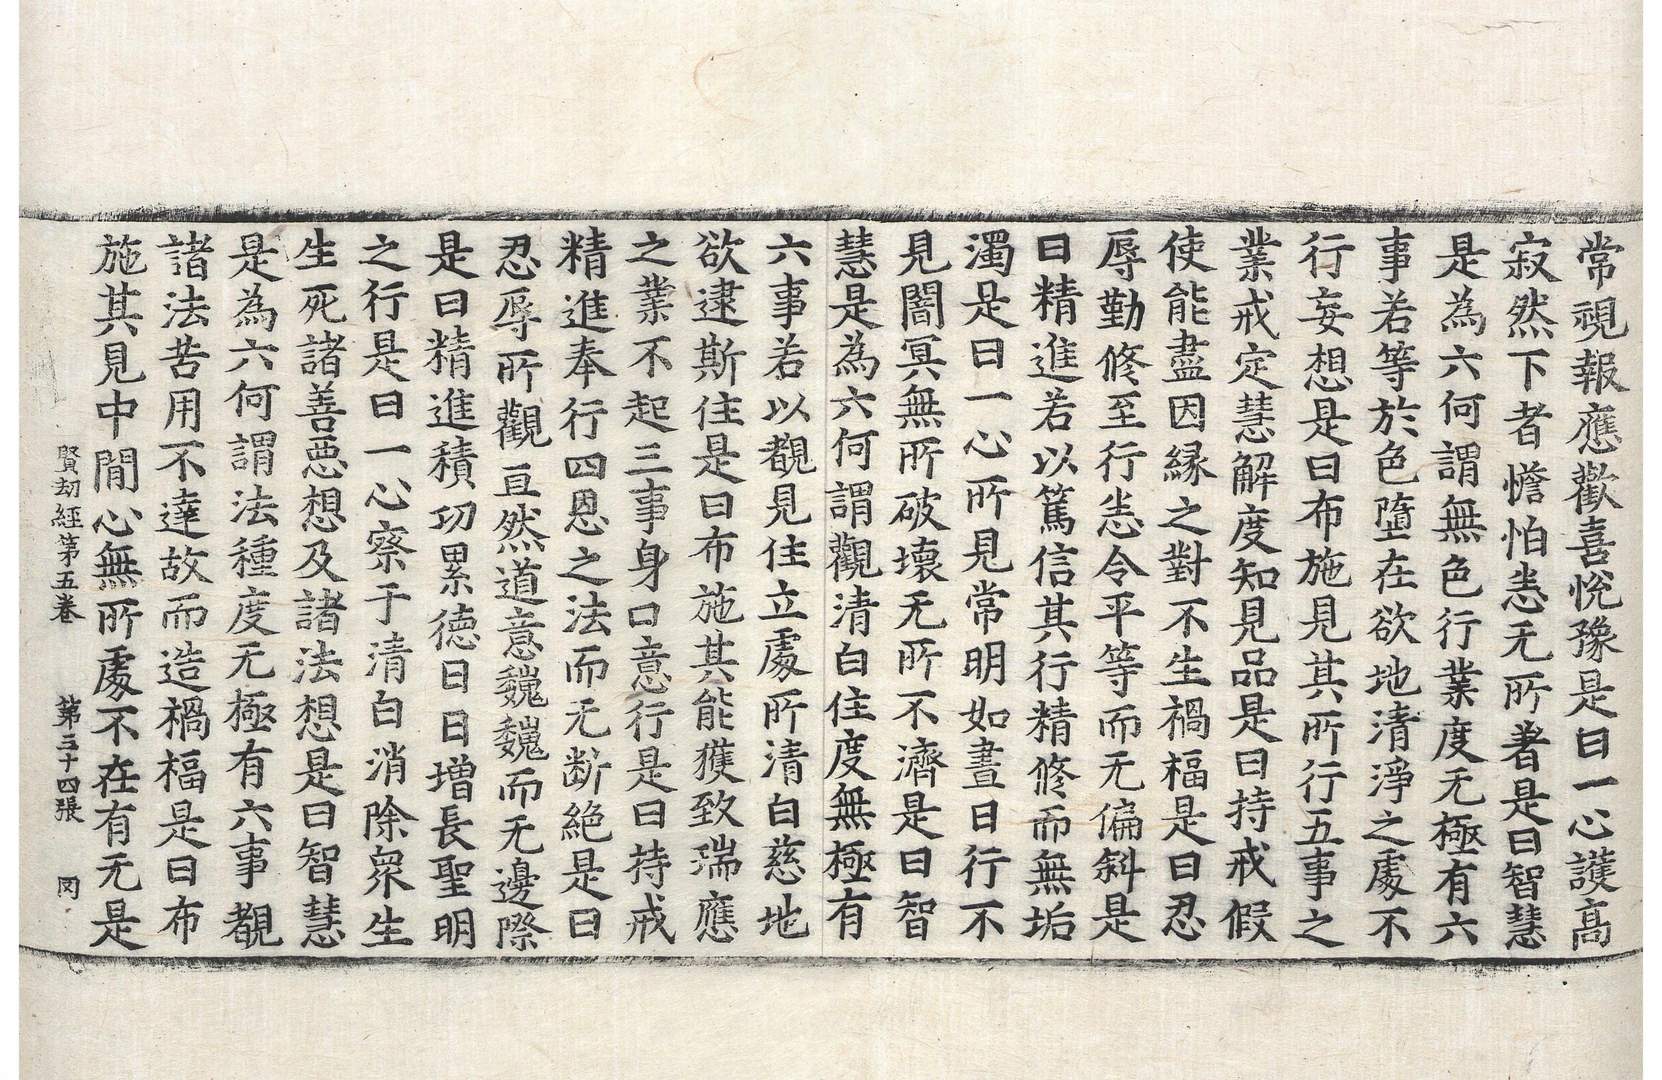 常視報應歡喜悅豫是曰一心護高
寂然下者憺怕恚无所著是曰智慧
是為六何謂無色行業度无極有六
事若等於色墮在欲地清淨之處不
行妄想是曰布施見其所行五事之
業戒定慧解度知見品是曰持戒假
使能盡因緣之對不生禍福是曰忍
辱勤修至行恚令平等而无偏斜是
曰精進若以篤信其行精修而無垢
濁是曰一心所見常明如晝日行不
見闇冥無所破壞无所不濟是曰智
慧是為六何謂觀清白住度無極有
六事若以覩見住立處所清白慈地
欲逮斯住是曰布施其能獲致瑞應
之業不起三事身口意行是曰持戒
精進奉行四恩之法而无斷絕是曰
忍辱所觀亘然道意巍巍而无邊際
是曰精進積功累德日日增長聖明
之行是曰一心察于清白消除衆生
生死諸善惡想及諸法想是曰智慧
是為六何謂法種度无極有六事覩
諸法苦用不達故而造禍福是曰布
施其見中間心無所處不在有无是
賢劫經第五卷 第三十四張 罔